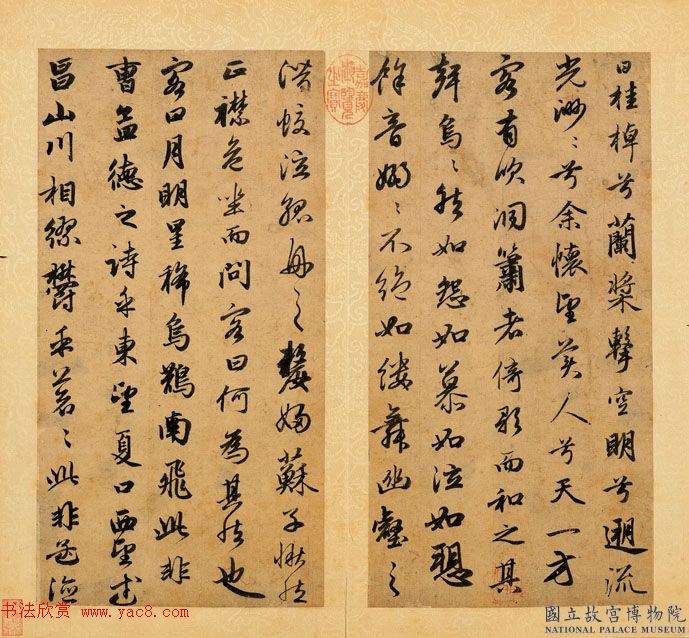 曰桂棹兮蘭槳擊空明兮遡流
光渺〻兮余懷望美人兮天一方
客有吹洞簫者倚歌而和之其
聲烏〻然如怨如慕如泣如愬
餘音嫋〻不絕如縷舞幽壑之
嘉慶御覽之寶
潛蛟泣孤舟之嫠婦蘇子愀然
正襟危坐而問客曰何為其然也
客曰月明星稀烏鵲南飛此非
曹孟德之詩乎東望夏口西望武
昌山川相繆鬱乎蒼〻此非孟德
书法欣赏 www.yac8.com
國立故宮博物院
NATIONAL PALACE MUSEUM